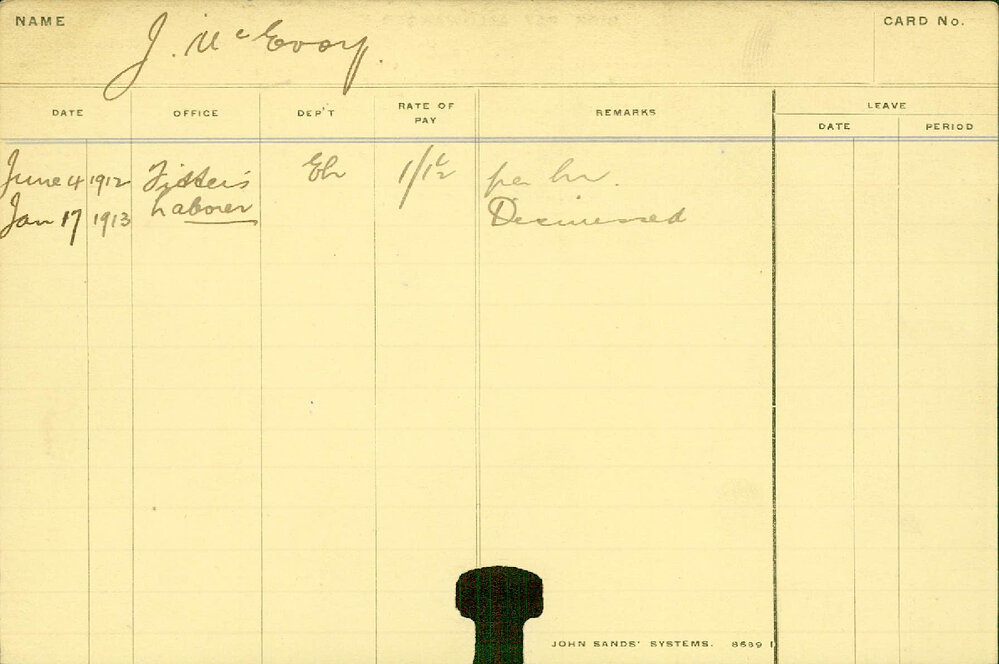 NAME J. McEvoy. CARD No.
DATE OFFICE DEP'T RATE OF PAY REMARKS LEAVE
DATE PERIOD
June 4 1912 Fitter's El 1/1½ per hr.
Jan 17 1913 Laborer Dismissed
JOHN SANDS' SYSTEMS. 8689